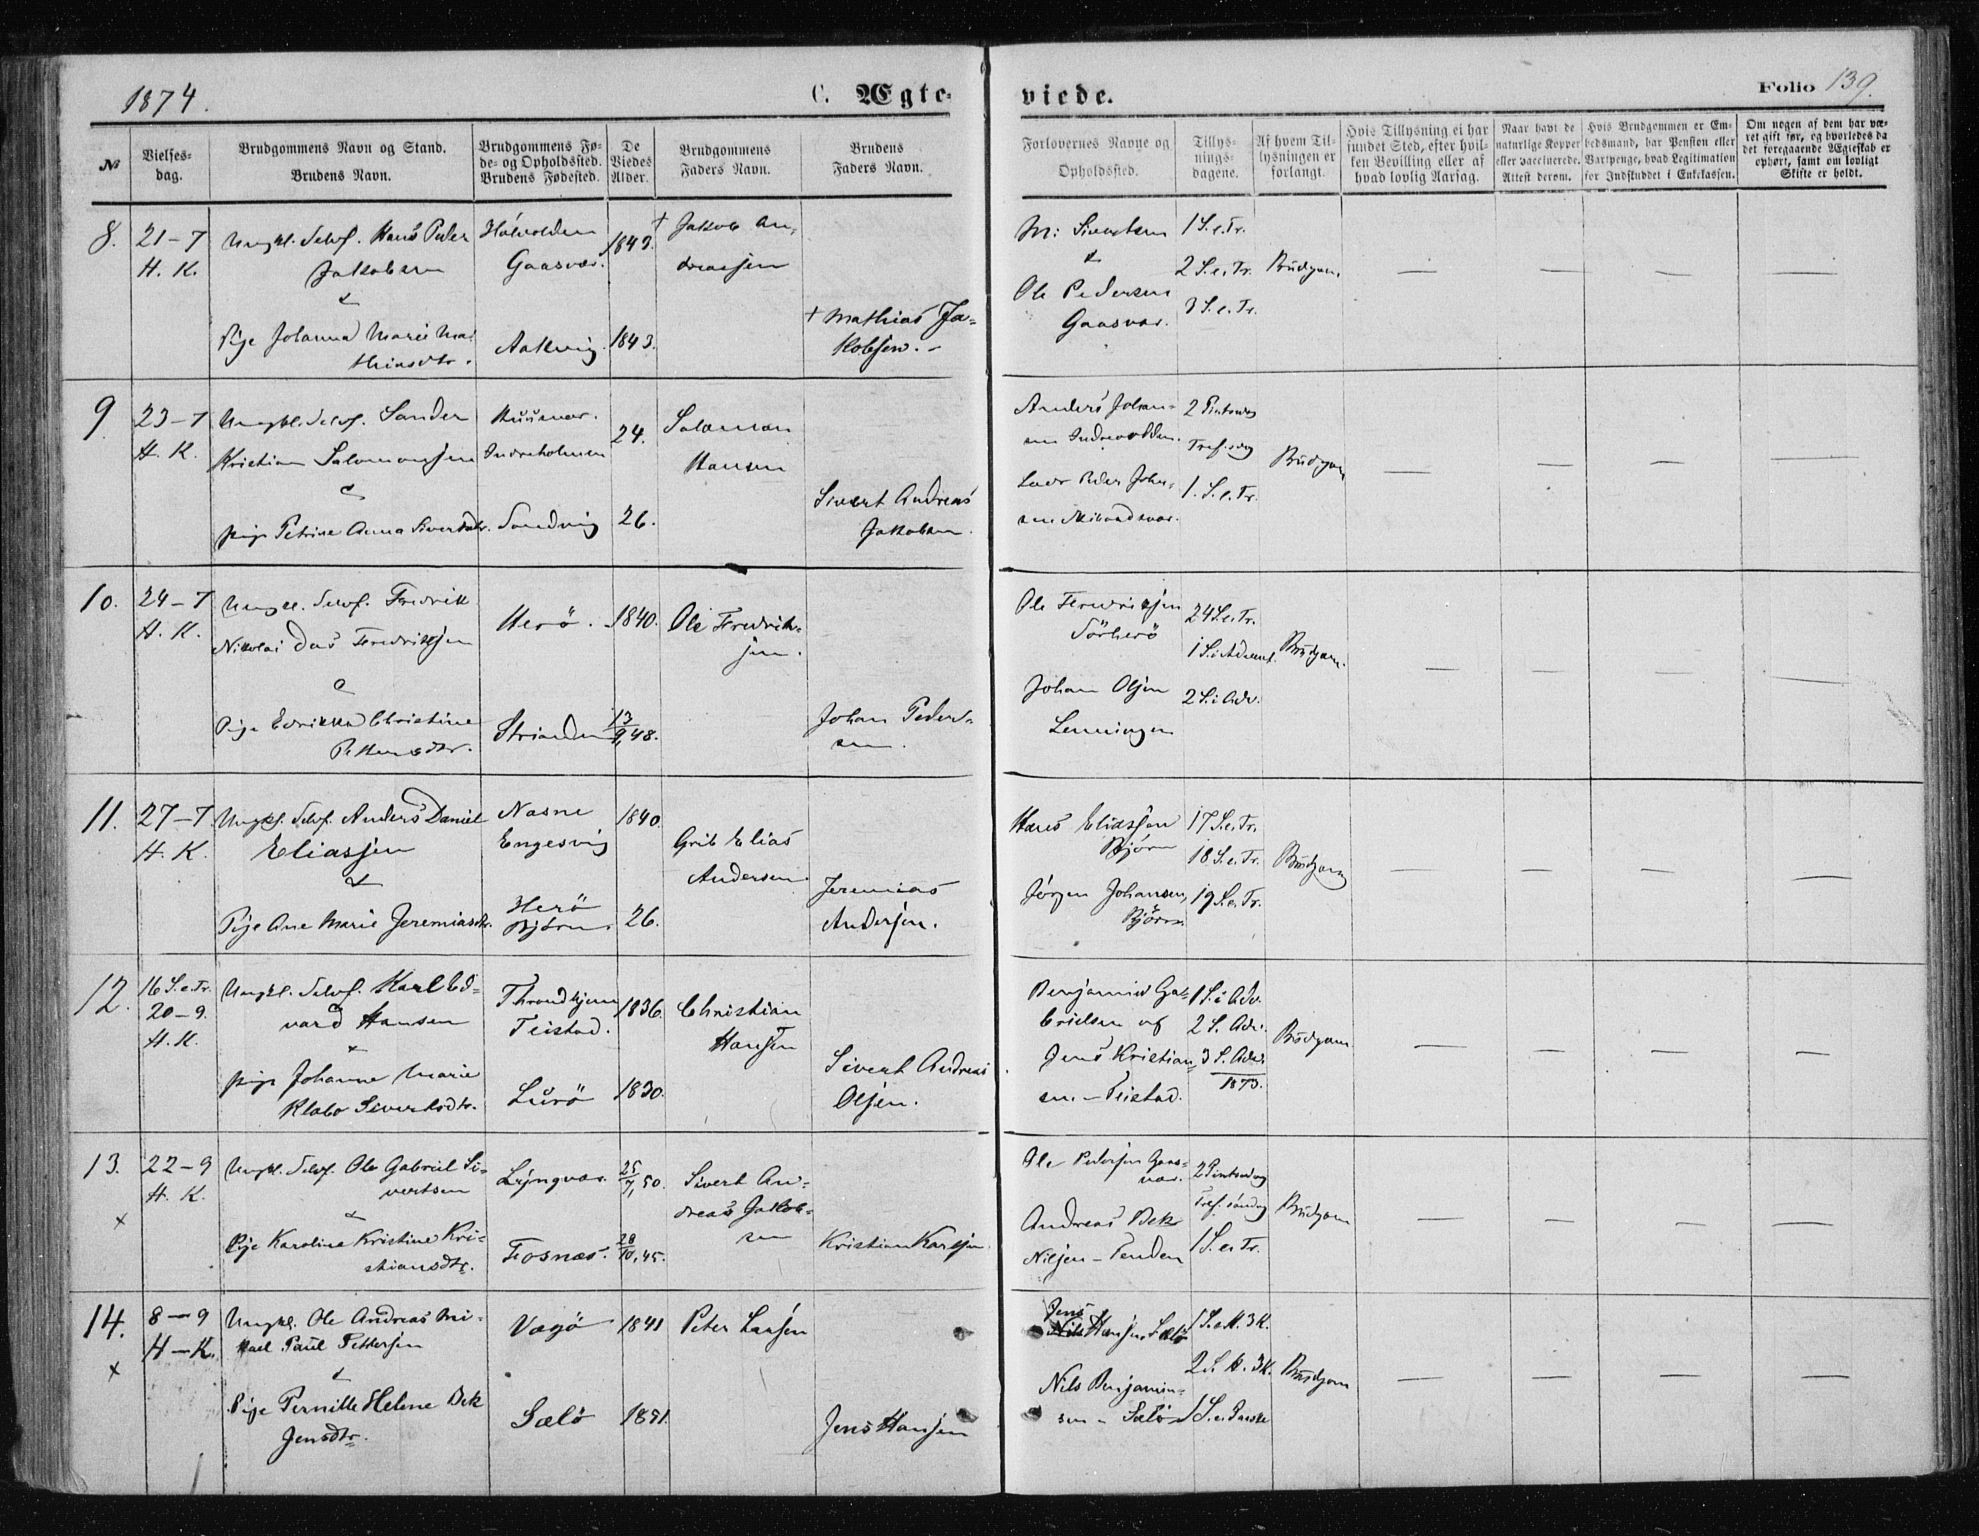 1874.
C. Ægte-
viede.
Folio 139.
№
Vielses-
dag.
Brudgommens Navn og Stand.
Brudens Navn.
Brudgommens Fø-
de- og Opholdssted.
Brudens Fødested.
De
Viedes
Alder.
Brudgommens
Faders Navn.
Brudens
Faders Navn.
Forlovernes Navne og
Opholdssted.
Tillys-
nings-
dagene.
Af hvem Til-
lysningen er
forlangt.
Hvis Tillysning ei har
fundet Sted, efter hvil-
ken Bevilling eller af
hvad lovlig Aarsag.
Naar havt de
naturlige Kopper
eller vaccinerede.
Attest derom.
Hvis Brudgommen er Em-
bedsmand, har Pension eller
Vartpenge, hvad Legitimation
for Indskuddet i Enkekassen.
Om nogen af dem har væ-
ret gift før, og hvorledes da
det foregaaende Ægteskab er
ophørt, samt om lovligt
Skifte er holdt.
8.
21-7
H. K.
Ungkl. Selvf. Hans Peder
Jakobsen
&
Pige Johanna Marie Ma-
thiasdtr.
Gaasvær.
Aakvig
1843.
1843.
† Jakob An-
dreasjen
† Mathias Ja-
kobsen.
M: Sivertsen
&
Ole Pedersen
Gaasvær.
1 S.e.Tr.
2 S.e.Tr.
3 S.e.Tr.
Brudgom.
9
23-7
H. K.
Ungkl. Selvf. Sander
Kristian Salomonsjen
&
pige Petrine Anna Sivertsdtr.
Indreholmen
Sandvig
24.
26.
Salomon
Hansen
Sivert Andreas
Jakobsen.
Anders Johan-
sen
Peder John-
sen
2 Pintsedag
Tref.sdag
1. S.e.Tr.
Brudgom
10.
24-7
H. K.
Ungkl. Selvf. Fredrik
Nikolai Das Fredriksjen
&
Pige Edrikka Christine
Herö.
Stranden
1840.
13/9,48.
Ole Fredrik-
sjen.
Johan Peder-
sen.
Ole Fredriksjen
Sörherö
Johan Olsjen
Lenningen
24 S.e.Tr.
1 S.i Advent.
2 S.i Adv.
Brudgom.
11.
27-7
H. K.
Ungkl. Selvf. Anders Daniel
Eliassjen
&
Pige Ane Marie Jeremiasdtr.
Nasne
Engesvig
Herö
Björn.
1840.
26.
Elias
Andersen.
Jeremias
Andersjen.
Hans Eliassjen
Bjørn
Jörgen Johansen,
Bjørn.
17 S.e.Tr.
18 S.e.Tr.
19 S.e.Tr.
Brudgom
12.
16 S.e.Tr.
20-9.
H.K.
Ungkl. Selvf. Karl Ed-
vard Hansen
&
pige Johanne Marie
Klabo Sivertsdtr.
Throndhjem
Teistad.
Lurö
1836.
1830.
Christian
Hansen
Sivert Andreas
Olsjen.
Benjamin Ga-
brielsen og
Jens Kristian-
sen - Teistad.
1 S.i Adv.
2 S. Adv.
3 S. Adv.
1873.
Brudgom
13.
22-9
H. K.
x
Ungkl. Selvf. Ole Gabriel Si-
vertsen
&
Pige Karoline Kristine Kri-
stiansdtr.
Lyngvær.
Fosnæs.
25/7,50.
28/10,45.
Sivert An-
dreas Jakob-
sen
Kristian Karlsjen
Ole Pedersjen Gaas-
vær.
Andreas Bek
Nilsjen - Tenden
2 Pintsedag
Tref.söndag
1 S.e.Tr.
Brudgom
14.
8-9
H-K.
x
Ungkl. Ole Andreas Mi-
kael Paul Pettersjen
&
Pige Pernille Helene Bek
Jensdtr.
Vægö
Sælö
1841
1851.
Peter Larsjen
Jens Hansjen
Jens
Nils Hansjen Sælö
Nils Benjamin-
sen - Sælö
1 S.e.H.3K.
2 S.H.3K.
1 S.e.Paaske
Brudgom